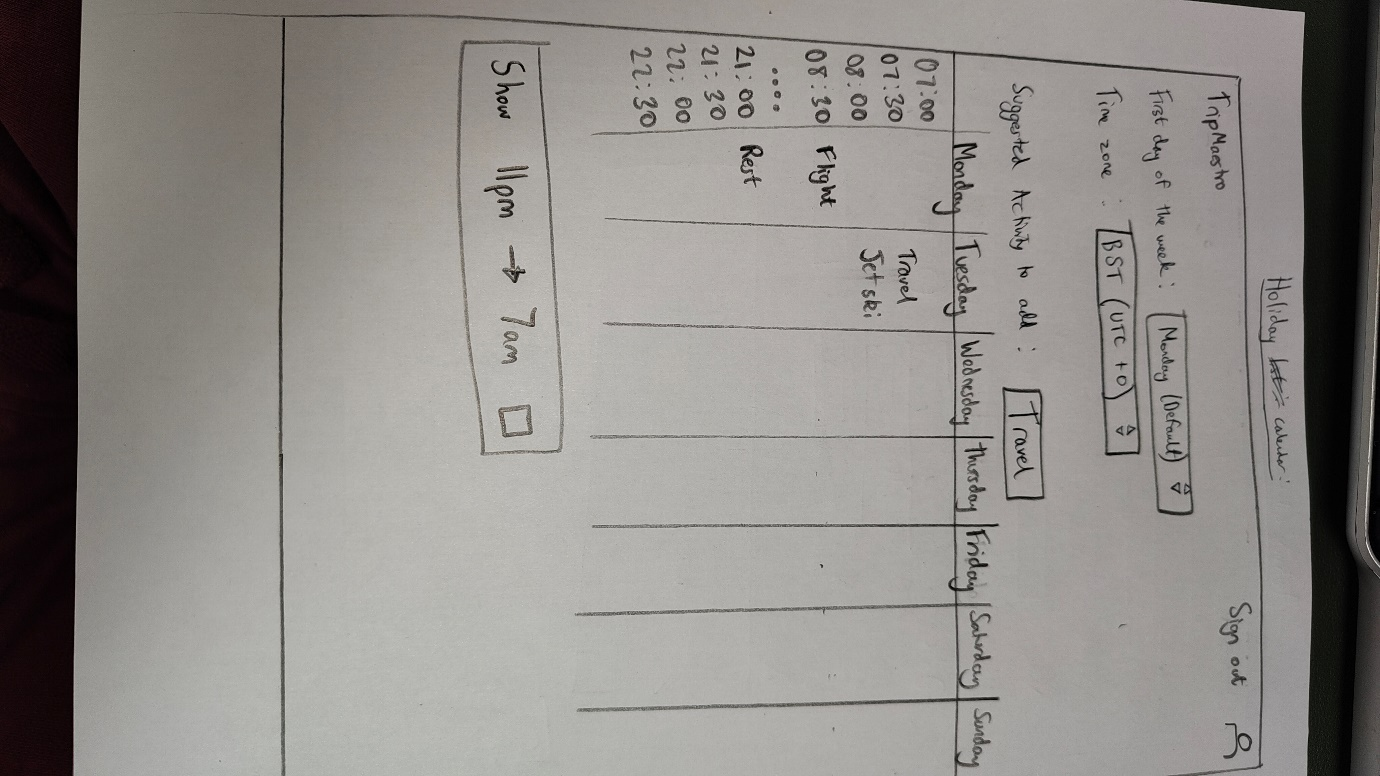 Holiday calendar:
TripMaestro Sign out
First day of the week: Monday (Default)
Time zone: BST (UTC +0)
Suggested Activity to add: Travel
Monday Tuesday Wednesday Thursday Friday Saturday Sunday
07:00
07:30 Travel
08:00 Jet ski
08:30 Flight
....
21:00 Rest
21:30
22:00
22:30
Show 11pm → 7am